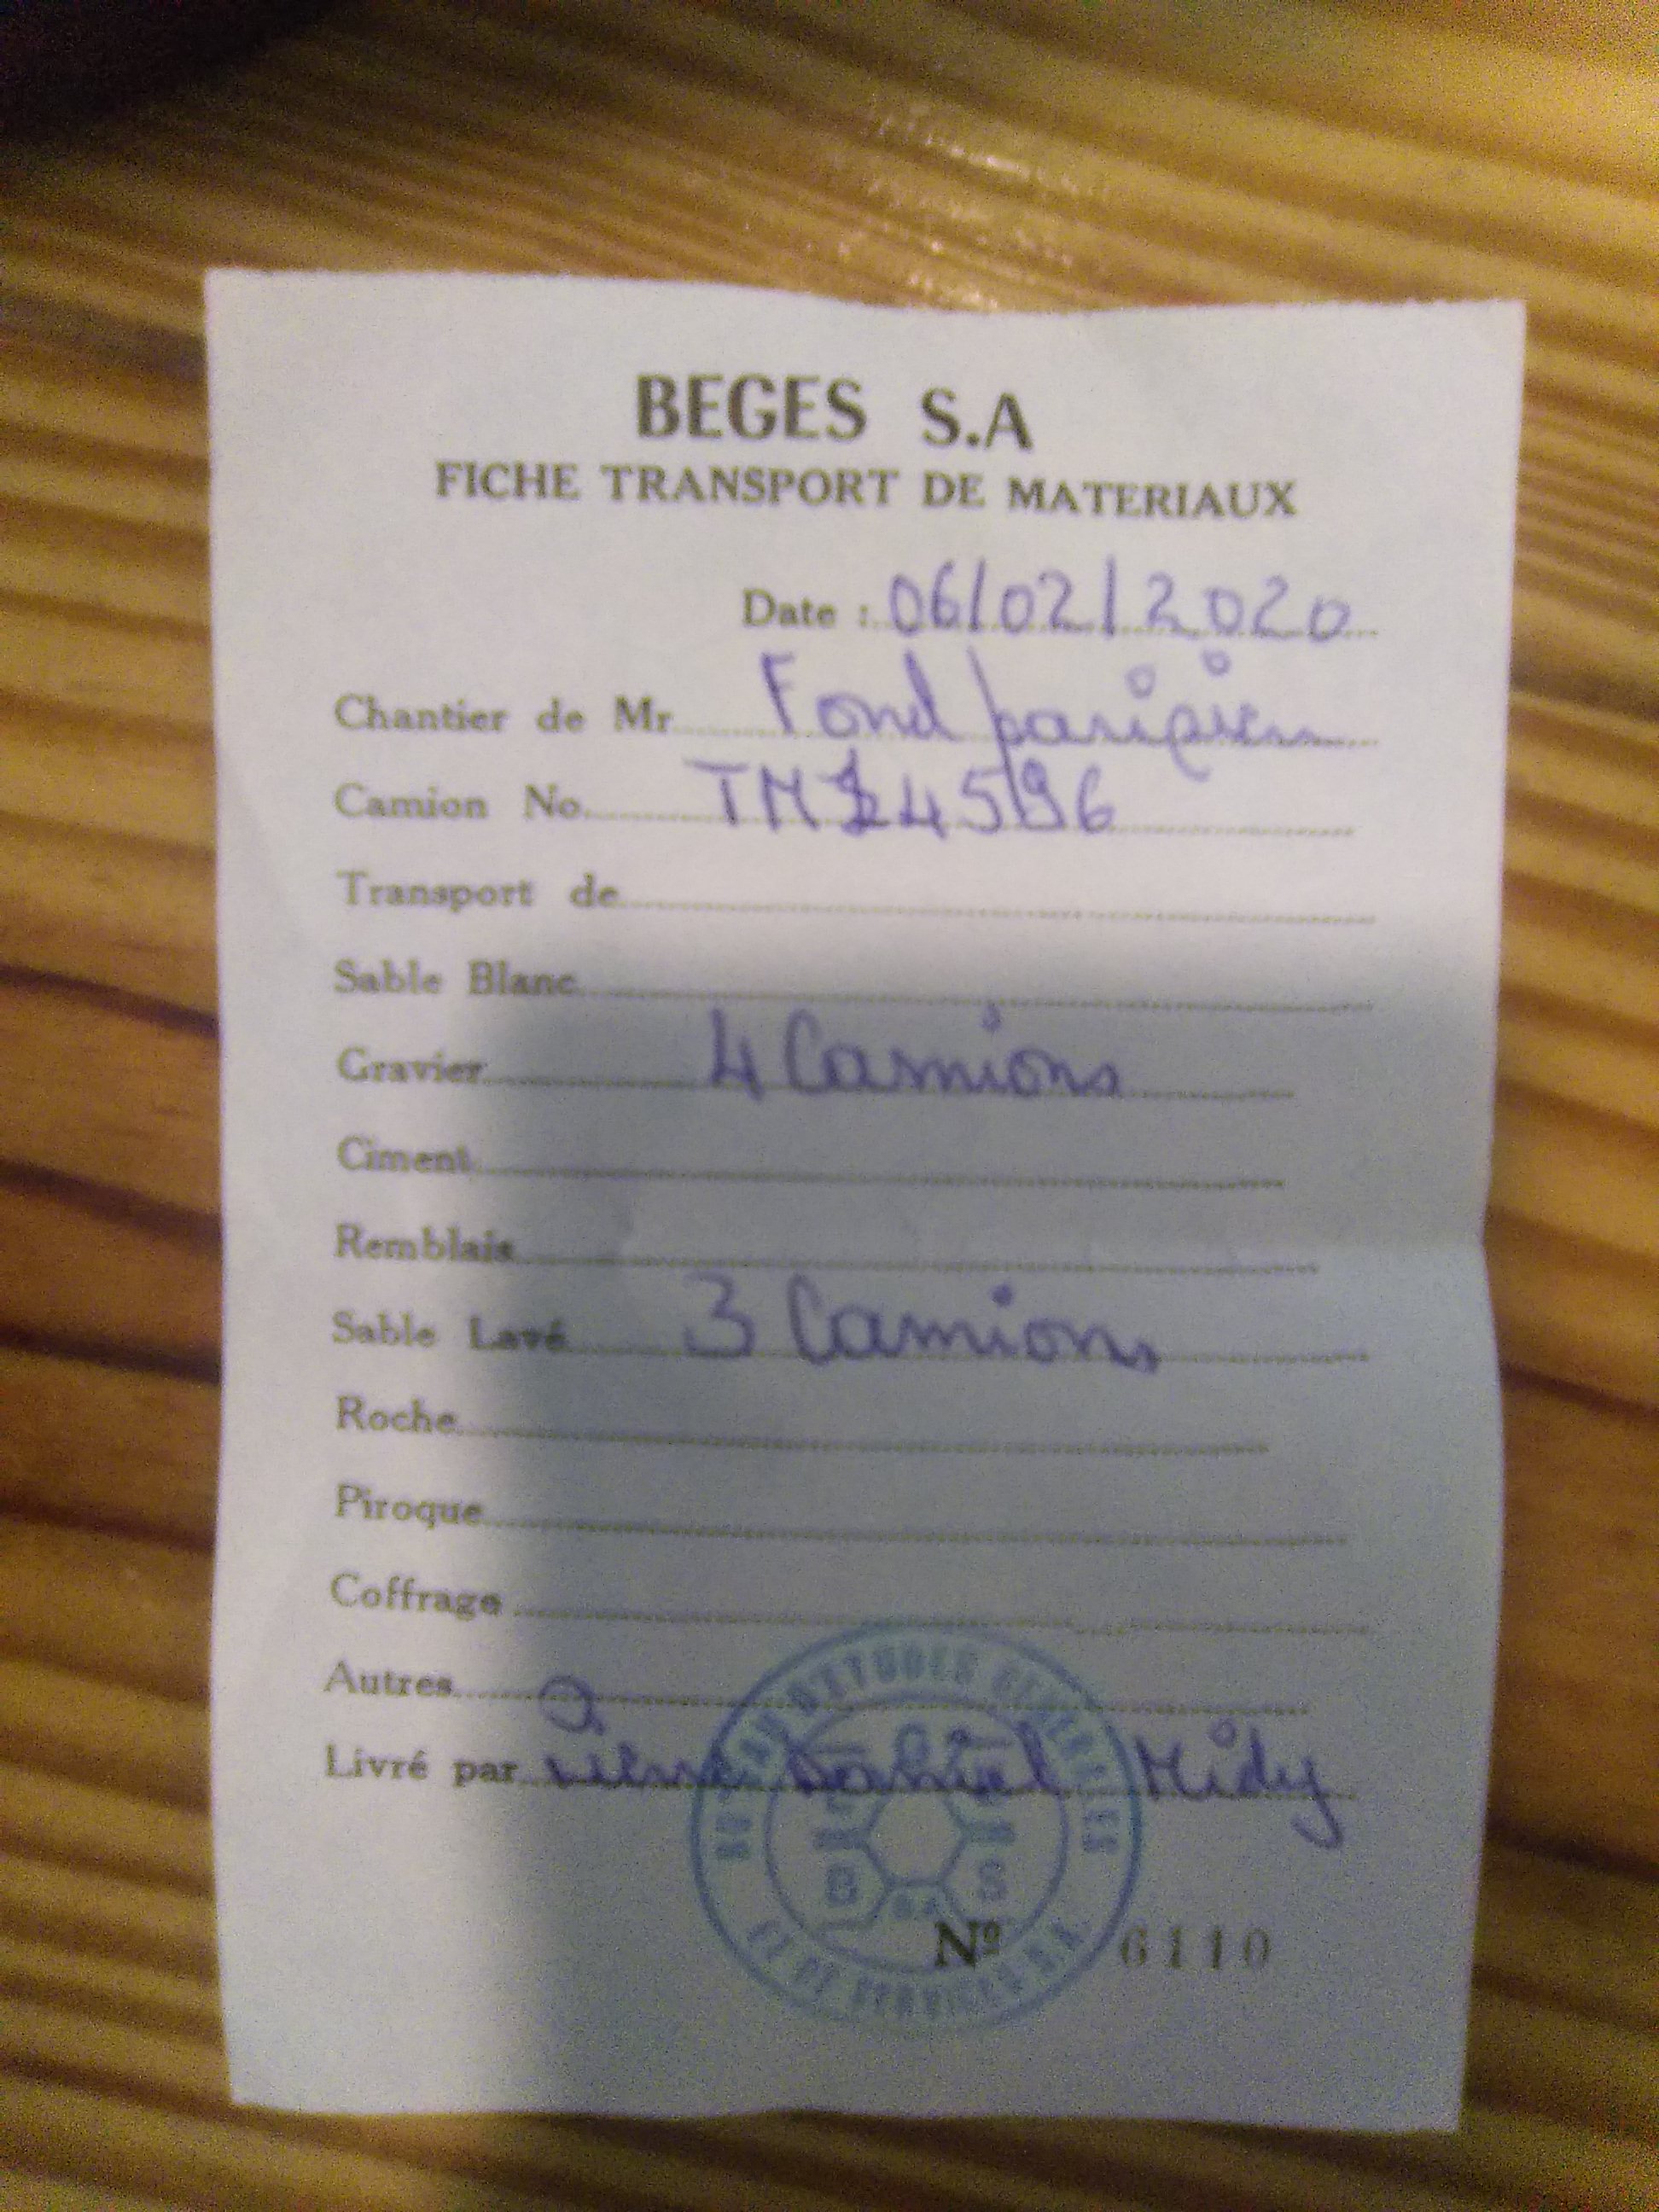 BEGES S.A
FICHE TRANSPORT DE MATERIAUX
Date : 06/02/2020
Chantier de Mr Fond parisien
Camion No. TM 14596
Transport de
Sable Blanc
Gravier 4 Camions
Ciment
Remblais
Sable Lavé 3 Camions
Roche
Piroque
Coffrage
Autres
Livré par Pierre Daniel Midy
BUREAU D'ETUDES GENERALES
ET DE SERVICES S.A.
Nº 6110